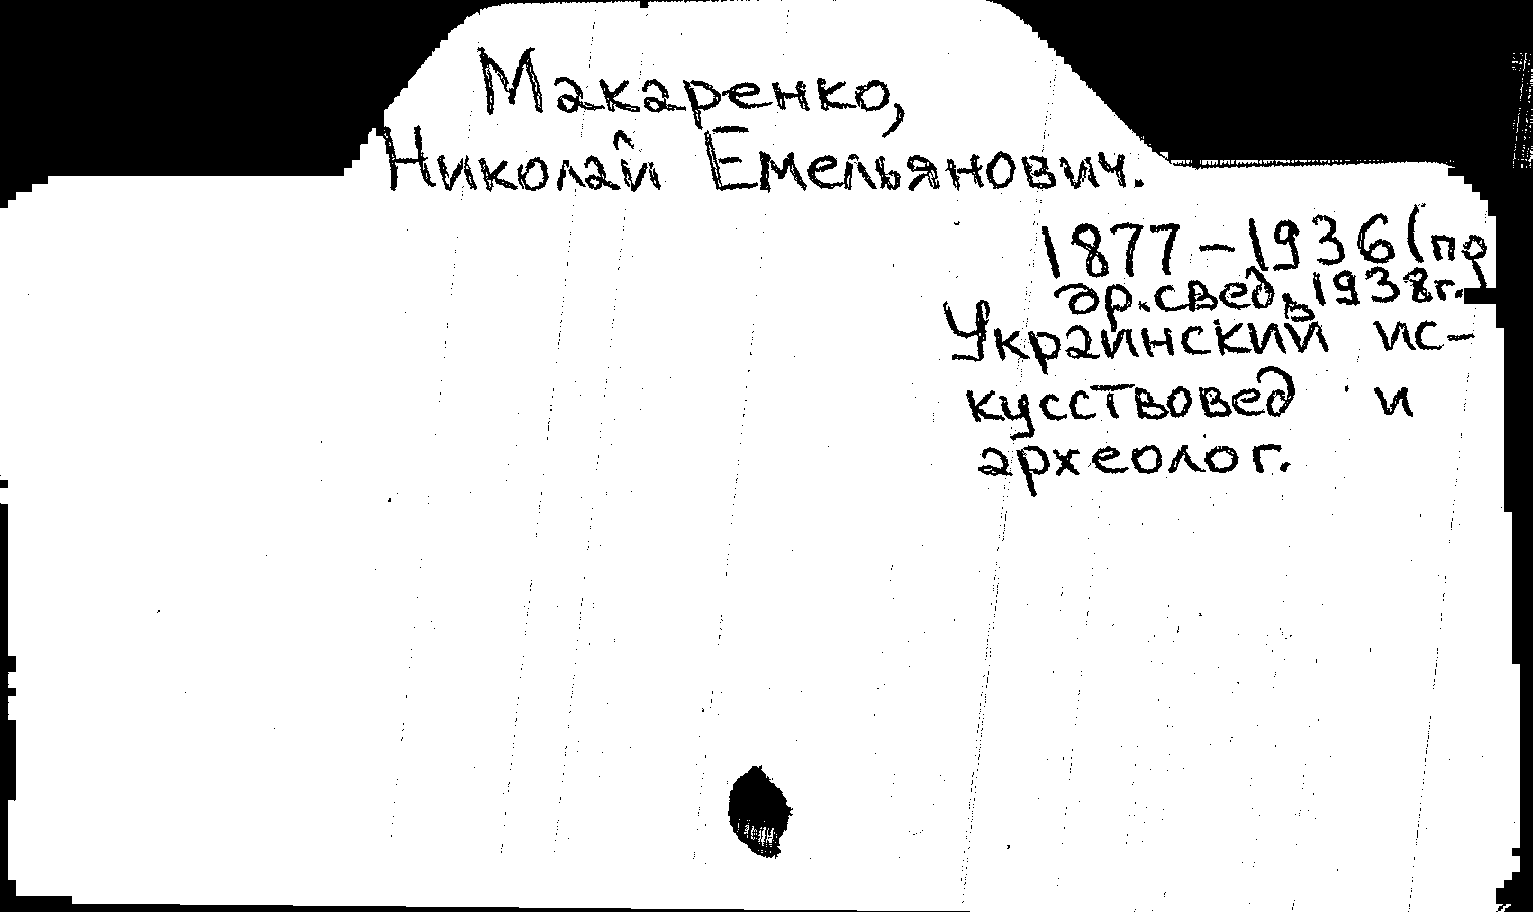 Макаренко,
Николай Емельянович.
1877-1936 (по
др. свед. в 1938 г.)
Украинский ис-
кусствовед и
археолог.